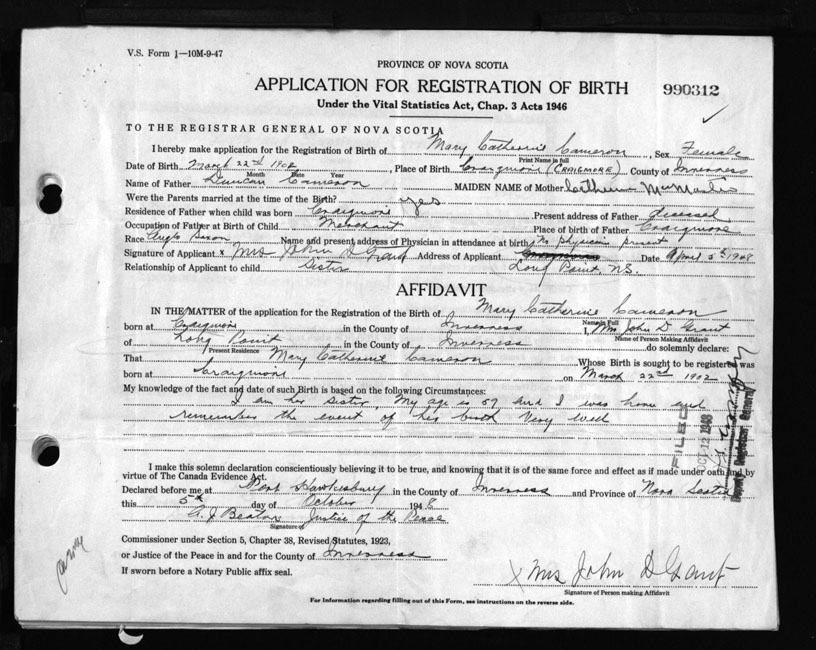 V.S. Form 1—10M-9-47
PROVINCE OF NOVA SCOTIA
APPLICATION FOR REGISTRATION OF BIRTH 990312
Under the Vital Statistics Act, Chap. 3 Acts 1946
TO THE REGISTRAR GENERAL OF NOVA SCOTIA
I hereby make application for the Registration of Birth of Mary Catherine Cameron, Sex Female
Print Name in full
Date of Birth March 22nd 1902, Place of Birth Craigmore (CRAIGMORE) County of Inverness
Month Date Year
Name of Father Duncan Cameron MAIDEN NAME of Mother Catherine McMaster
Were the Parents married at the time of the Birth? yes
Residence of Father when child was born Craigmore Present address of Father deceased
Occupation of Father at Birth of Child Merchant Place of birth of Father Craigmore
Race Anglo Saxon Name and present address of Physician in attendance at birth No physician present
Signature of Applicant x Mrs John D Grant Address of Applicant Long Point, N.S. Date April 5th 1948
Relationship of Applicant to child Sister
AFFIDAVIT
IN THE MATTER of the application for the Registration of the Birth of Mary Catherine Cameron
Name in Full
born at Craigmore in the County of Inverness I, Mrs John D Grant
Name of Person Making Affidavit
of Long Point in the County of Inverness do solemnly declare:
Present Residence
That Mary Catherine Cameron Whose Birth is sought to be registered was
born at Craigmore on March 22nd 1902
My knowledge of the fact and date of such Birth is based on the following Circumstances:
I am her sister, My age is 57 and I was home and
remember the event of her birth very well
FILED
12 1948
I make this solemn declaration conscientiously believing it to be true, and knowing that it is of the same force and effect as if made under oath and by
virtue of The Canada Evidence Act.
Declared before me at Port Hawkesbury in the County of Inverness and Province of Nova Scotia
this 5th day of October 1948
A. J Beaton Justice of the Peace
Signature of
Commissioner under Section 5, Chapter 38, Revised Statutes, 1923,
or Justice of the Peace in and for the County of Inverness
If sworn before a Notary Public affix seal.
x Mrs John D Grant
Signature of Person making Affidavit
For Information regarding filling out of this Form, see instructions on the reverse side.